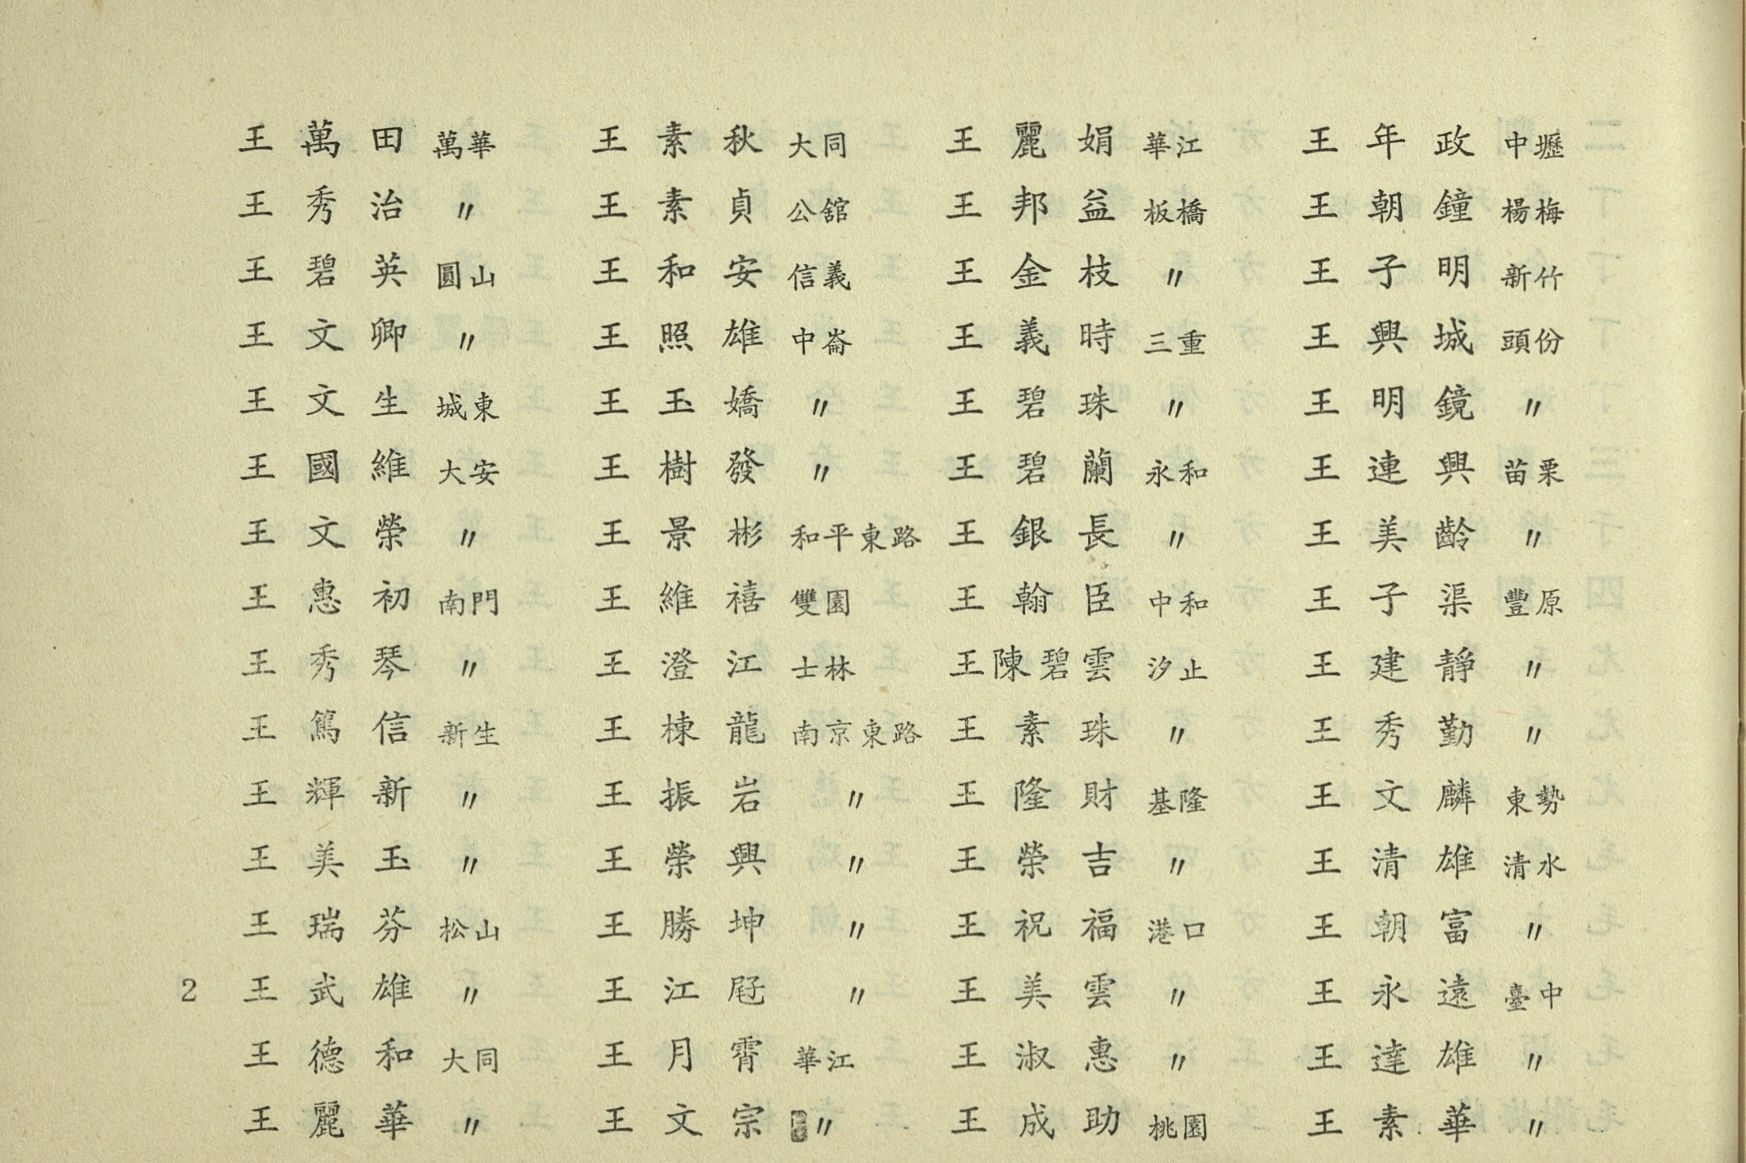 王萬田 萬華 王素秋 大同 王麗娟 華江 王年政 中壢
王秀治 〃 王素貞 公舘 王邦益 板橋 王朝鐘 楊梅
王碧英 圓山 王和安 信義 王金枝 〃 王子明 新竹
王文卿 〃 王照雄 中崙 王義時 三重 王興城 頭份
王文生 城東 王玉嬌 〃 王碧珠 〃 王明鏡 〃
王國維 大安 王樹發 〃 王碧蘭 永和 王連興 苗栗
王文榮 〃 王景彬 和平東路 王銀長 〃 王美齡 〃
王惠初 南門 王維禧 雙園 王翰臣 中和 王子渠 豐原
王秀琴 〃 王澄江 士林 王陳碧雲 汐止 王建靜 〃
王篤信 新生 王棟龍 南京東路 王素珠 〃 王秀勤 〃
王輝新 〃 王振岩 〃 王隆財 基隆 王文麟 東勢
王美玉 〃 王榮興 〃 王榮吉 〃 王清雄 清水
王瑞芬 松山 王勝坤 〃 王祝福 港口 王朝富 〃
2 王武雄 〃 王江 〃 王美雲 〃 王永遠 臺中
王德和 大同 王月霄 華江 王淑惠 〃 王達雄 〃
王麗華 〃 王文宗 〃 王成助 桃園 王素華 〃